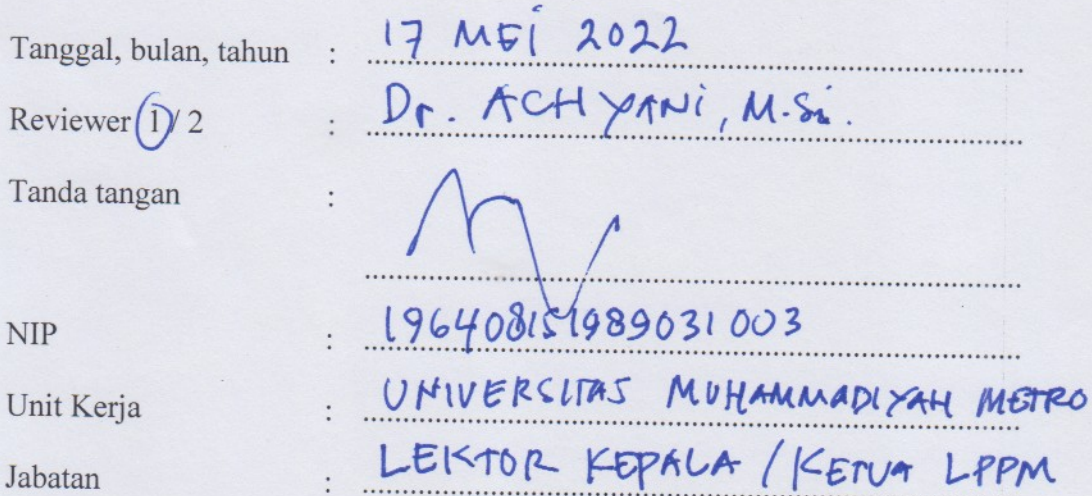 Tanggal, bulan, tahun : 17 MEi 2022
Reviewer 1/ 2 : Dr. ACHYANi, M.Si.
Tanda tangan :
NIP : 196408151989031003
Unit Kerja : UNIVERSITAS MUHAMMADIYAH METRO
Jabatan : LEKTOR KEPALA / KETUA LPPM